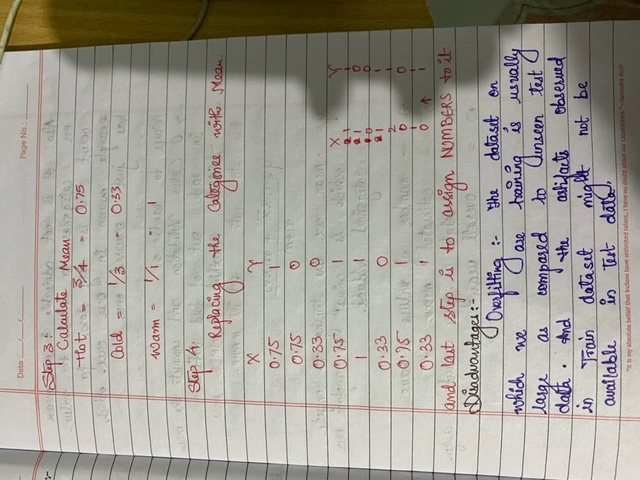 Date ___/___/___
Page No.:
Step 3:
Calculate Mean
Hot = 3/4 = 0.75
Cold = 1/3 - 0.33
Warm = 1/1 - 1
Step 4:
Replacing the Categories with Mean.
X Y
0.75 1
0.75 0
0.33 0
0.75 1
1 1
0.33 0
0.75 1
0.33 1
X Y
1 1
1 0
0 0
1 1
2 1
0 0
1 1
0 ↑ 1
and last step is to assign NUMBERS to it
Disadvantages:-
Overfitting :- The dataset on
which we are training is usually
large as compared to unseen test
data. And the artifacts observed
in Train dataset might not be
available in test data.
"It is my absolute belief that Indians have unlimited talent. I have no doubt about our capabilities."-Narendra Modi